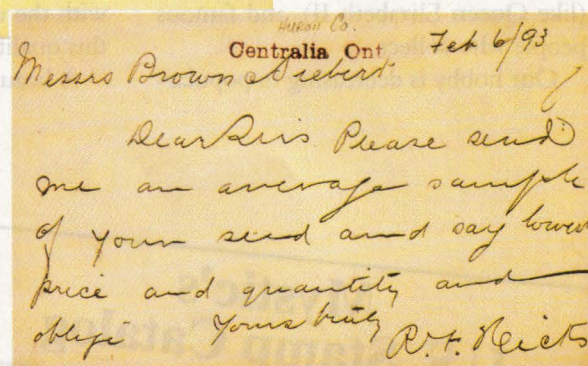 Huron Co.
Centralia Ont Feb 6/93
Messrs Brown & Siebert
Dear Sirs Please send
me an average sample
of your seed and say lowest
price and quantity and
oblige Yours truly R.F. Hicks